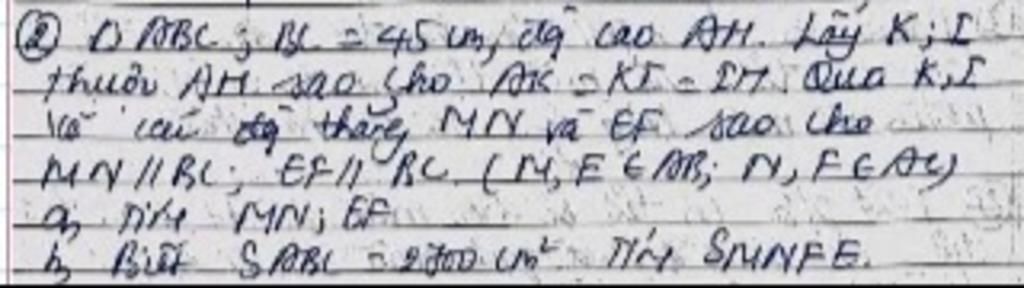 ② Δ ABC; BC = 45 cm, đg cao AH. Lấy K; I
thuộc AH sao cho AK = KI = IH. Qua K, I
vẽ các đg thẳng MN và EF sao cho
MN // BC; EF // BC. (M, E ∈ AB; N, F ∈ AC)
a, Tính MN; EF
b, Biết SABC = 2700 cm² Tính SMNFE.